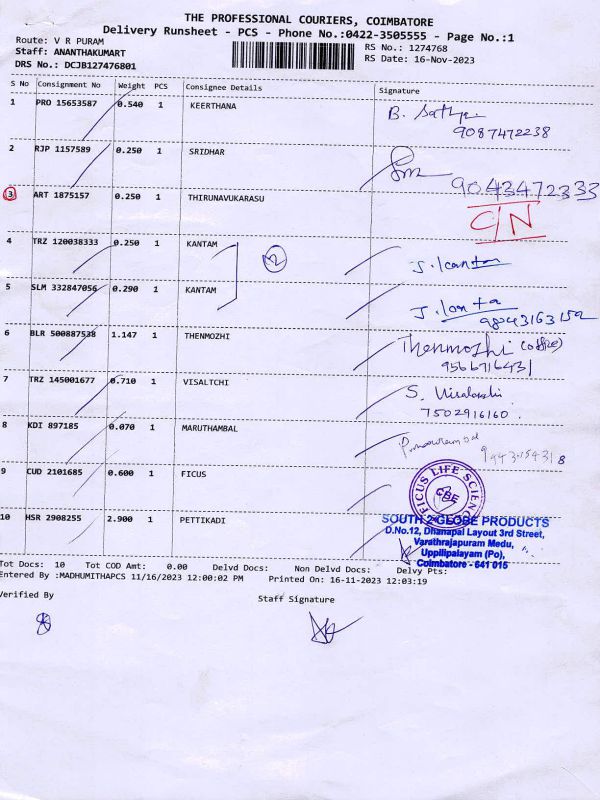 THE PROFESSIONAL COURIERS, COIMBATORE
Delivery Runsheet - PCS - Phone No.:0422-3505555 - Page No.:1
Route: V R PURAM
RS No.: 1274768
Staff: ANANTHAKUMART
RS Date: 16-Nov-2023
DRS No.: DCJB127476801
S No Consignment No Weight PCS Consignee Details Signature
1 PRO 15653587 0.540 1 KEERTHANA B. Sathya
9087472238
2 RJP 1157589 0.250 1 SRIDHAR
9043472333
3 ART 1875157 0.250 1 THIRUNAVUKARASU C/N
4 TRZ 120038333 0.250 1 KANTAM 2 J. kanta
5 SLM 332847056 0.290 1 KANTAM J. kanta
9843163152
6 BLR 500887538 1.147 1 THENMOZHI Thenmozhi (office)
9566716431
7 TRZ 145001677 0.710 1 VISALTCHI S. Visalakshi
7502916160.
8 KDI 897185 0.070 1 MARUTHAMBAL
9 CUD 2101685 0.600 1 FICUS FICUS LIFE SCIENC
CBE
10 HSR 2908255 2.900 1 PETTIKADI SOUTH 2 GLOBE PRODUCTS
D.No.12, Dhanapal Layout 3rd Street,
Varathrajapuram Medu,
Uppilipalayam (Po),
Coimbatore - 641 015
Tot Docs: 10 Tot COD Amt: 0.00 Delvd Docs: Non Delvd Docs: Delvy Pts:
Entered By :MADHUMITHAPCS 11/16/2023 12:00:02 PM Printed On: 16-11-2023 12:03:19
Verified By
Staff Signature